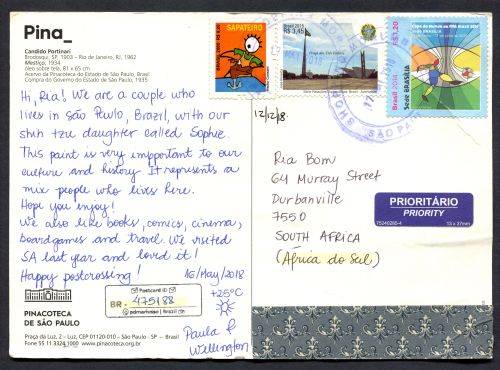 Pina_
Candido Portinari
Brodosqui, SP, 1903 – Rio de Janeiro, RJ, 1962
Mestiço, 1934
óleo sobre tela, 81 x 65 cm
Acervo da Pinacoteca do Estado de São Paulo, Brasil.
Compra do Governo do Estado de São Paulo, 1935
Hi, Ria! We are a couple who
lives in São Paulo, Brazil, with our
shih tzu daughter called Sophie.
This paint is very important to our
culture and history. It represents a
mix people who lives here.
Hope you enjoy!
We also like books, comics, cinema,
boardgames and travel. We visited
SA last year and loved it!
Happy postcrossing!
16/May/2018
+25°C
Postcard ID
BR - 475188
Brazil
Paula &
Wellington
PINACOTECA
DE SÃO PAULO
Praça da Luz, 2 – Luz, CEP 01120-010 – São Paulo - SP – Brasil
Fone 55 11 3324 1000 www.pinacoteca.org.br
SAPATEIRO
Brasil 2018
R$ 3,45
Brasil 2014
R$1,20
Sede BRASÍLIA
SÃO PA
12/12/8.
Ria Bom
64 Murray Street
Durbanville
7550
SOUTH AFRICA
(África do Sul)
PRIORITÁRIO
PRIORITY
75240203-4
13 x 37mm